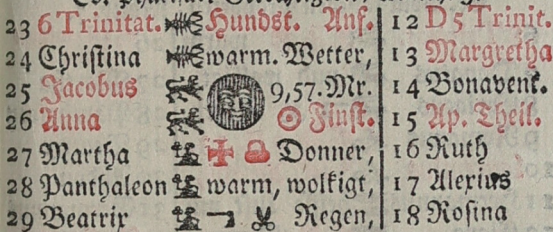 23 6 Trinitat. Hundst. Anf. 12 D 5 Trinit.
24 Christina warm. Wetter, 13 Margretha
25 Jacobus 9,57. Mr. 14 Bonavent.
26 Anna Finst. 15 Ap. Theil.
27 Martha Donner, 16 Ruth
28 Panthaleon warm, wolkigt, 17 Alexius
29 Beatrix Regen, 18 Rosina